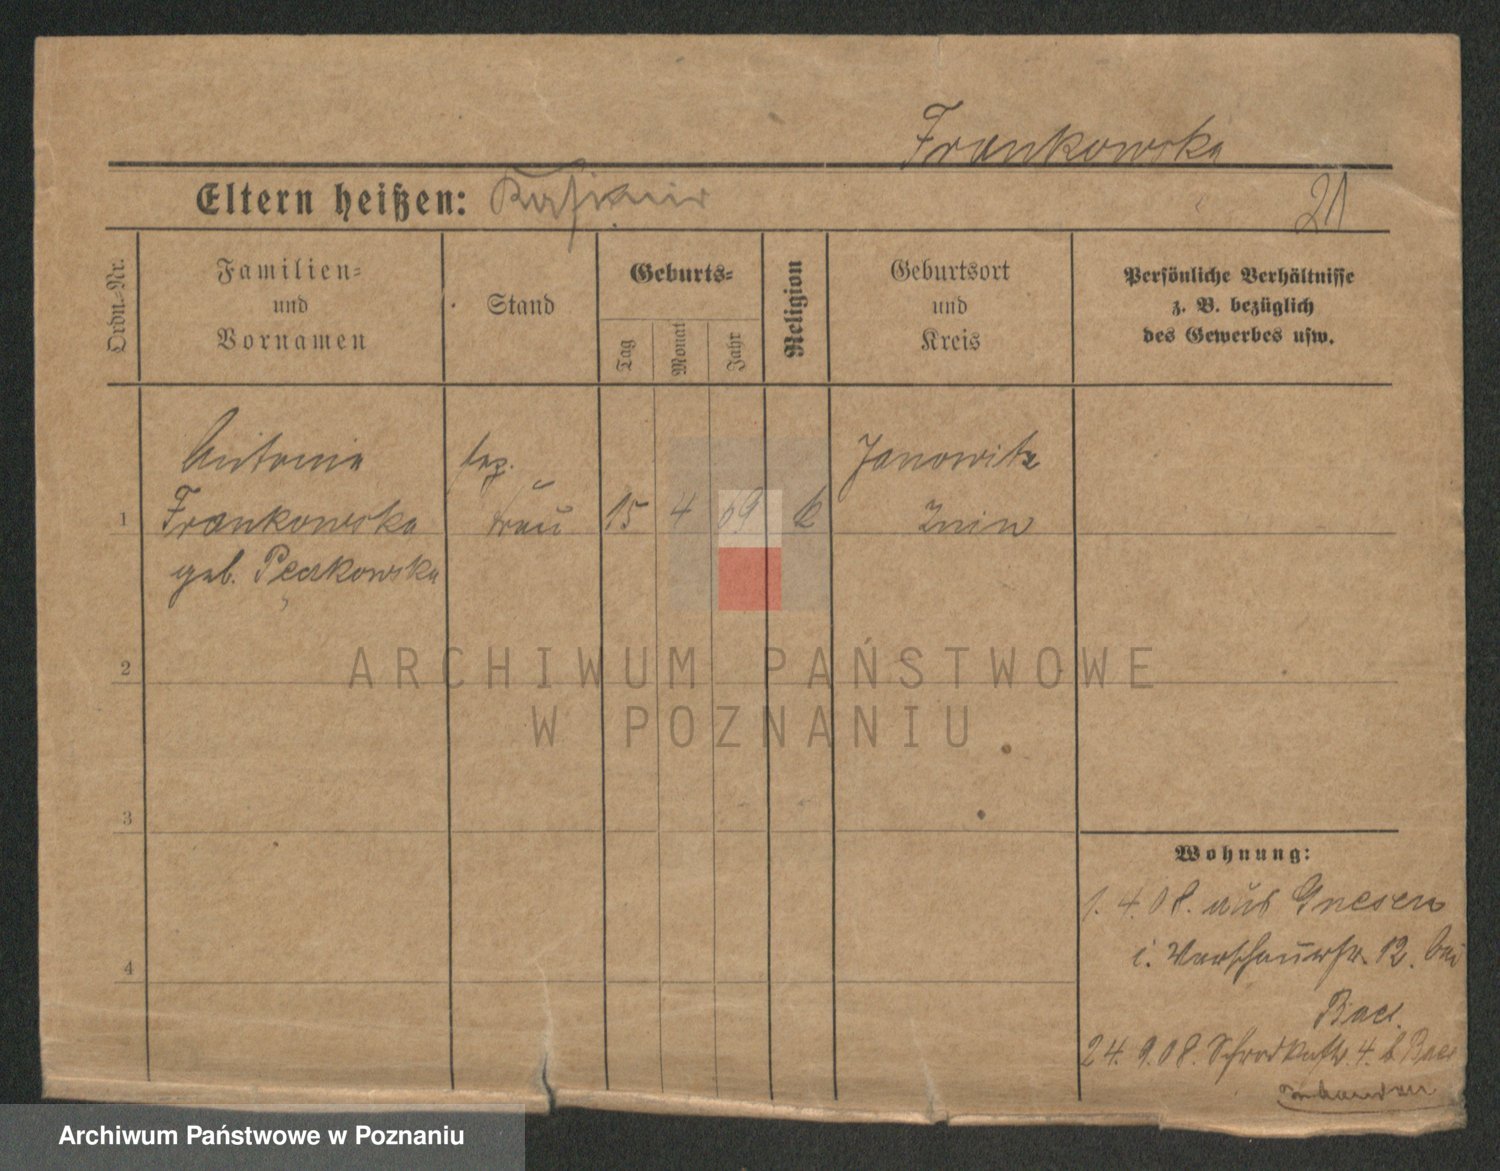 Frankowska
Eltern heißen: Kasimir
21
Ordn.-Nr.
Familien-
und
Vornamen
Stand
Geburts-
Tag
Monat
Jahr
Religion
Geburtsort
und
Kreis
Persönliche Verhältnisse
z. B. bezüglich
des Gewerbes usw.
Antonie
Janowitz
1
Frankowska
frau
15
4
09
k
Znin
geb.
2
ARCHIWUM PAŃSTWOWE
W POZNANIU
3
Wohnung:
1. 4. 08. aus Gnesen
4
i. Warschauerstr. 12. bei
Bace.
24. 9. 08. Schrodkastr. 4. b. Bace
Archiwum Państwowe w Poznaniu